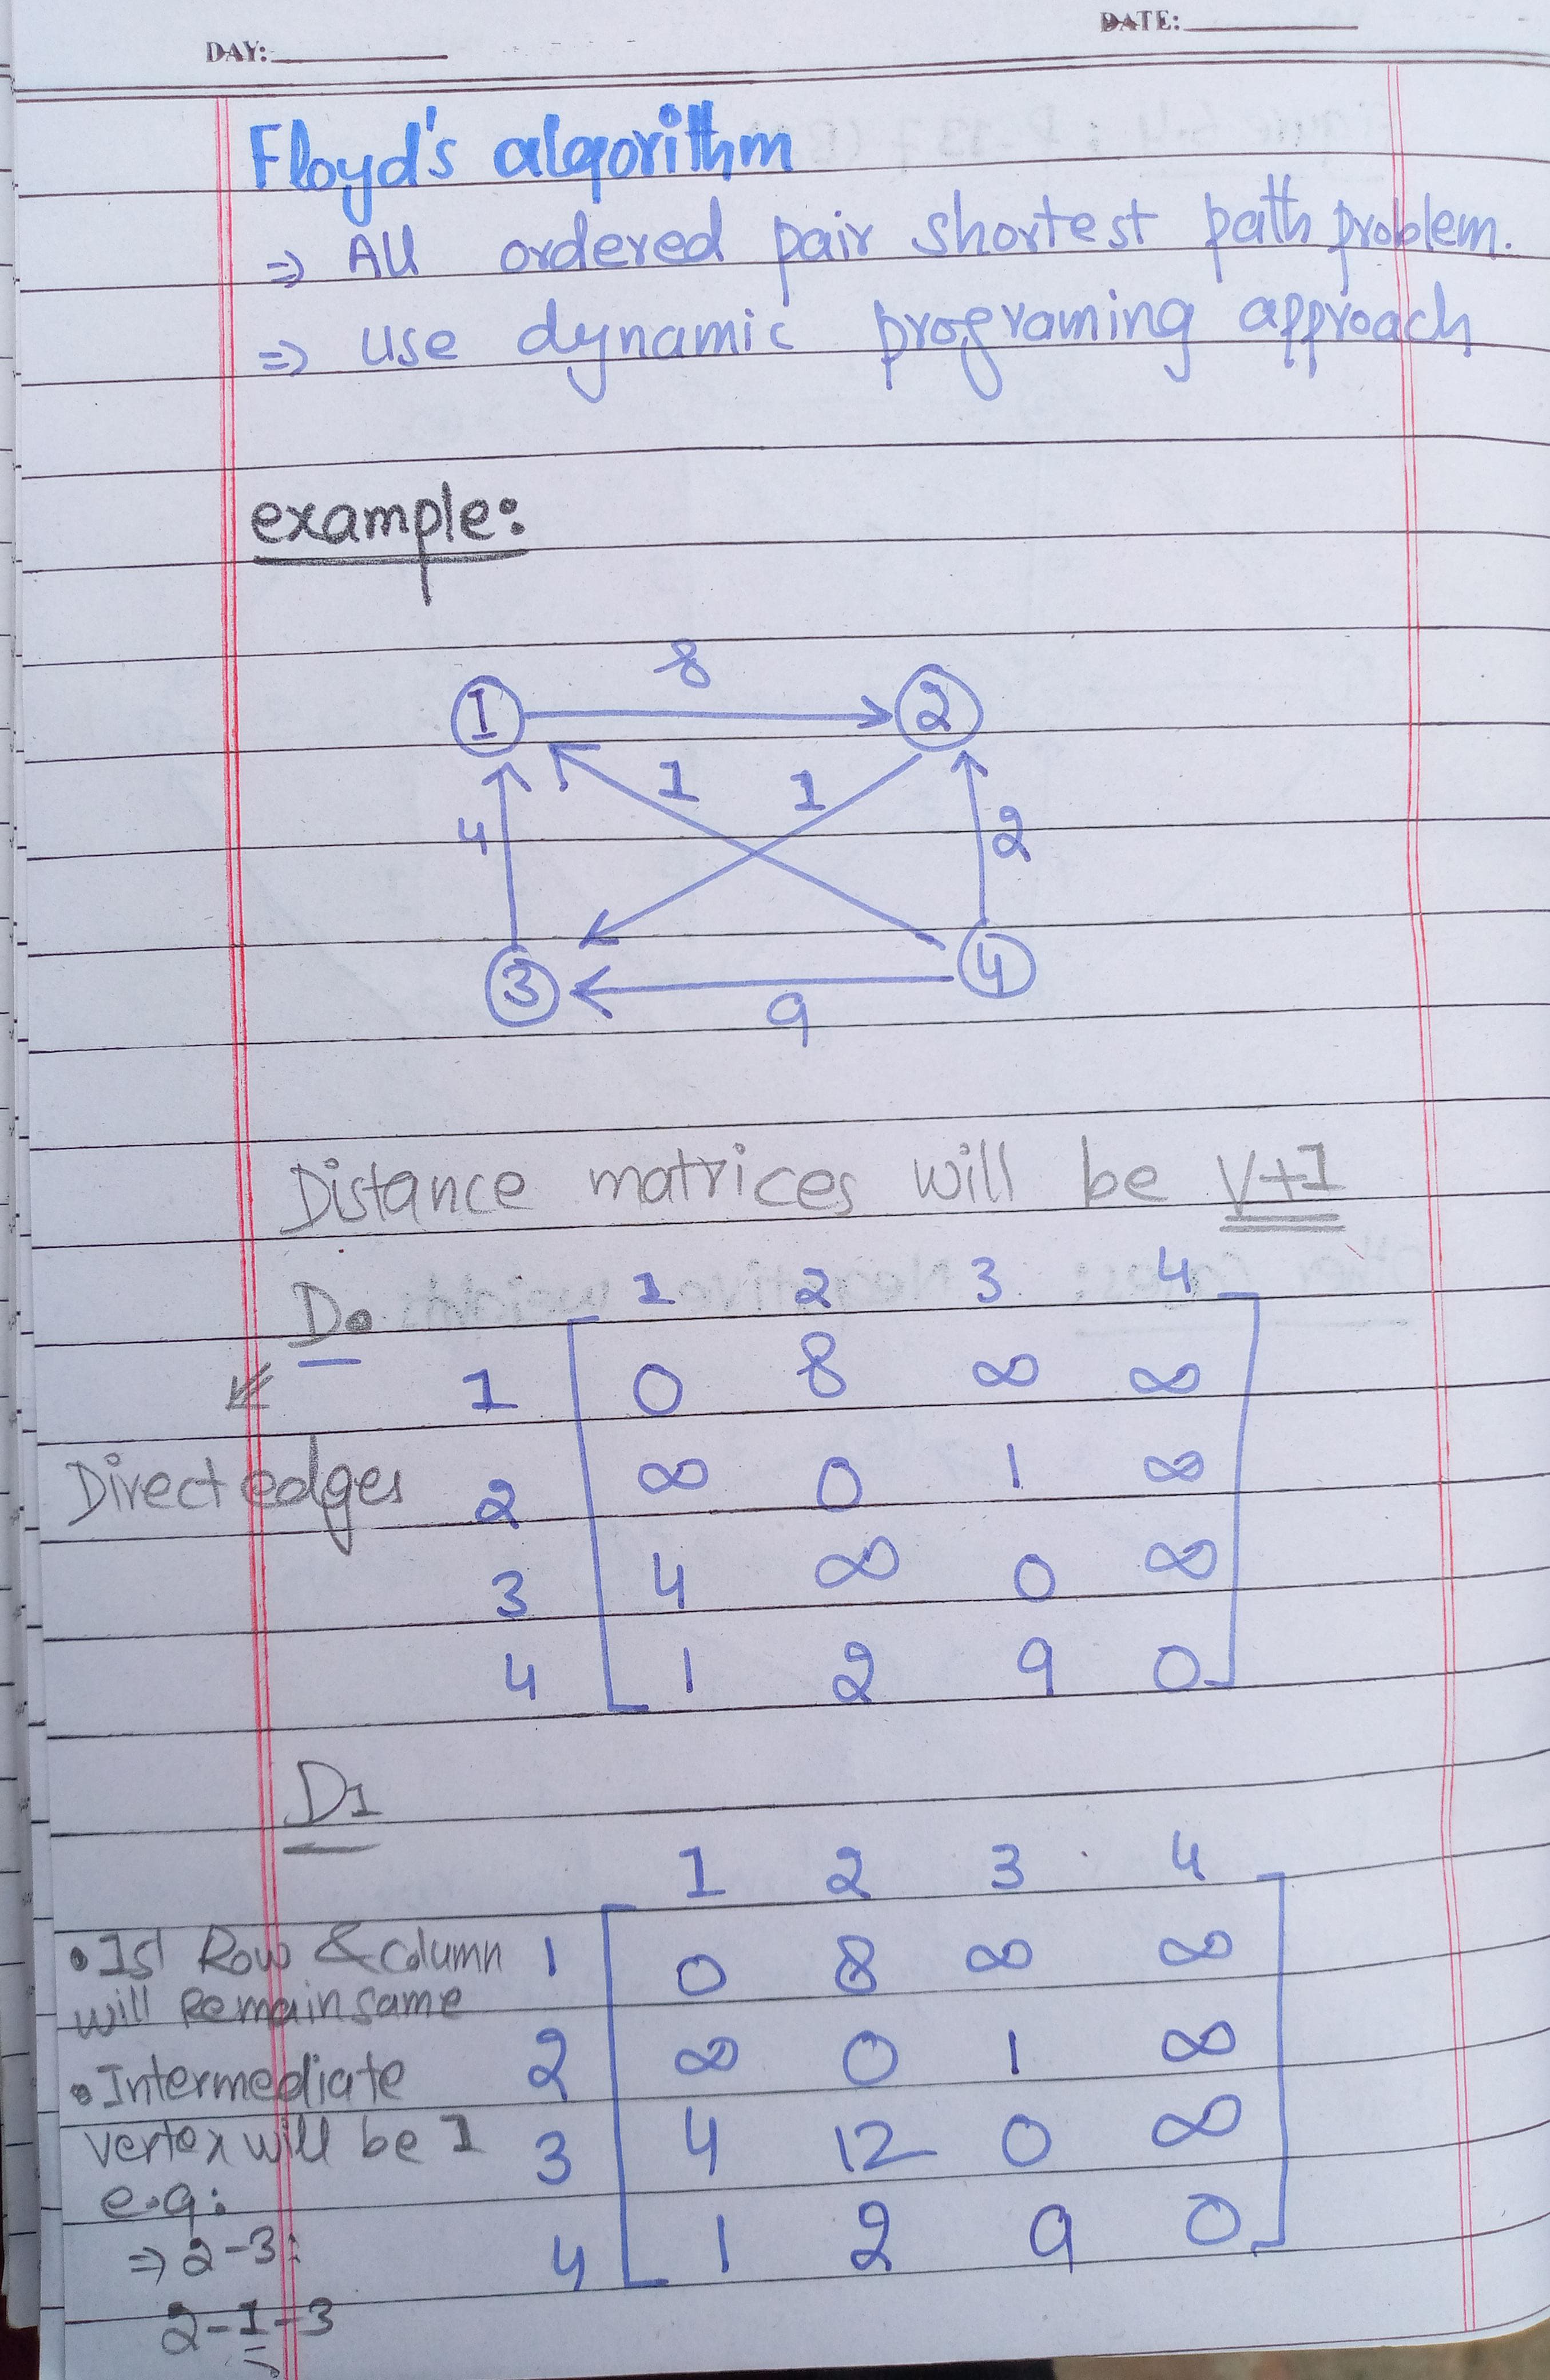 DAY:
DATE:
Floyd's algorithm
⇒ All ordered pair shortest path problem.
⇒ use dynamic programing approach
example:
8
1 2
1 1
4 2
3 4
9
Distance matrices will be V+1
D0 1 2 3 4
1 0 8 ∞ ∞
Direct edges 2 ∞ 0 1 ∞
3 4 ∞ 0 ∞
4 1 2 9 0
D1
1 2 3 4
• 1st Row & column 1 0 8 ∞ ∞
will Remain same
• Intermediate 2 ∞ 0 1 ∞
vertex will be 1 3 4 12 0 ∞
e.g:
⇒ 2-3: 4 1 2 9 0
2-1-3